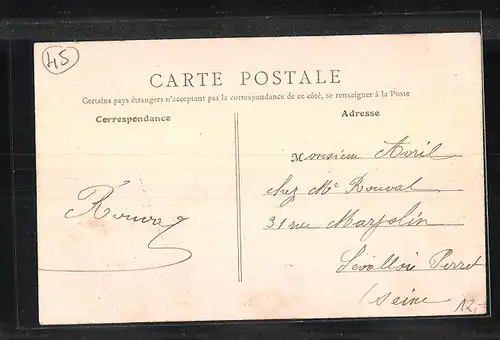 45
CARTE POSTALE
Certains pays étrangers n'acceptant pas la correspondance de ce côté, se renseigner à la Poste
Correspondance
Adresse
Monsieur Avril
chez Mr Rouval
31 rue Marjolin
Levallois Perret
Seine
12,-